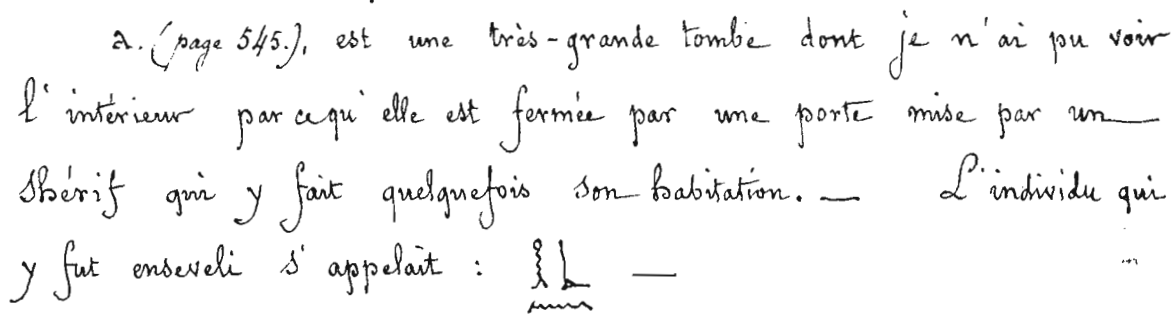 a. (page 545.), est une très-grande tombe dont je n'ai pu voir
l'intérieur parcequ'elle est fermée par une porte mise par un
shérif qui y fait quelquefois son habitation. — L'individu qui
y fut enseveli s'appelait : 𓎛𓃀𓈖 —